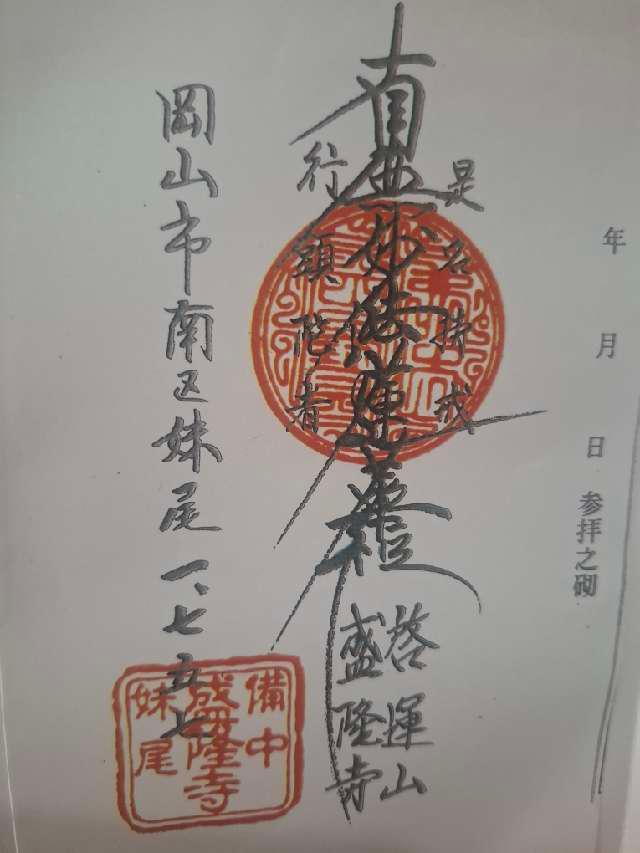 年 月 日 参拝之砌
是名持戒
南無妙法蓮華経
行頭陀者
啓運山
盛隆寺
岡山市南区妹尾一、七五七
備中
盛隆寺
妹尾